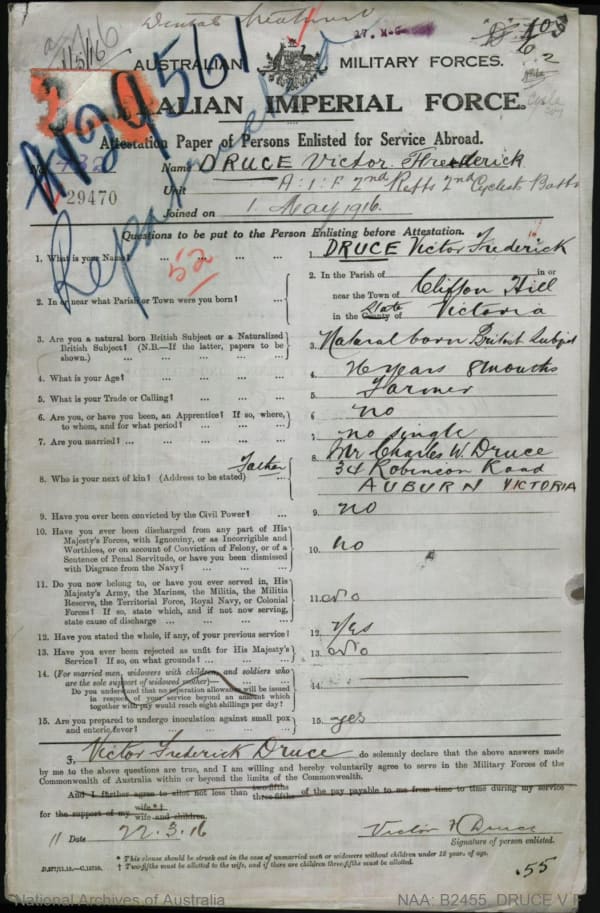 Dental Treatment
1/5/16
27. M
AUSTRALIAN MILITARY FORCES.
ALIAN IMPERIAL FORCE.
Attestation Paper of Persons Enlisted for Service Abroad.
29470
Name DRUCE Victor Frederick
Unit A.I.F. 2nd Reffs 2nd Cyclist Battn
Joined on 1. May 1916.
Questions to be put to the Person Enlisting before Attestation.
52
1. What is your Name? ... ... ... 1. DRUCE Victor Frederick
2. In or near what Parish or Town were you born? ... 2. In the Parish of in or
near the Town of Clifton Hill
in the County of State Victoria
3. Are you a natural born British Subject or a Naturalized British Subject? (N.B.—If the latter, papers to be shown.) ... 3. Natural born British Subject
4. What is your Age? ... ... ... 4. 26 years 8 months
5. What is your Trade or Calling? ... ... 5. Farmer
6. Are you, or have you been, an Apprentice? If so, where, to whom, and for what period? ... 6. no
7. Are you married? ... ... ... 7. no single
8. Who is your next of kin? (Address to be stated) Father 8. Mr Charles W. Druce
34 Robinson Road
AUBURN VICTORIA
9. Have you ever been convicted by the Civil Power? ... 9. no
10. Have you ever been discharged from any part of His
Majesty's Forces, with Ignominy, or as Incorrigible and
Worthless, or on account of Conviction of Felony, or of a
Sentence of Penal Servitude, or have you been dismissed
with Disgrace from the Navy? ... 10. no
11. Do you now belong to, or have you ever served in, His
Majesty's Army, the Marines, the Militia, the Militia
Reserve, the Territorial Force, Royal Navy, or Colonial
Forces? If so, state which, and if not now serving,
state cause of discharge ... 11. No
12. Have you stated the whole, if any, of your previous service? 12. Yes
13. Have you ever been rejected as unfit for His Majesty's
Service? If so, on what grounds? ... 13. No
14. (For married men, widowers with children, and soldiers who
are the sole support of widowed mother)—
Do you understand that no separation allowance will be issued
in respect of your service beyond an amount which
together with pay would reach eight shillings per day? 14.
15. Are you prepared to undergo inoculation against small pox
and enteric fever? 15. yes
I, Victor Frederick Druce do solemnly declare that the above answers made
by me to the above questions are true, and I am willing and hereby voluntarily agree to serve in the Military Forces of the
Commonwealth of Australia within or beyond the limits of the Commonwealth.
And I further agree to allot not less than two-fifths three-fifths of the pay payable to me from time to time during my service
for the support of my wife*† wife and children.
Date 22.3.16 Victor F Druce
Signature of person enlisted.
* This clause should be struck out in the case of unmarried men or widowers without children under 18 years of age.
† Two-fifths must be allotted to the wife, and if there are children three-fifths must be allotted.
55
National Archives of Australia NAA: B2455, DRUCE V F